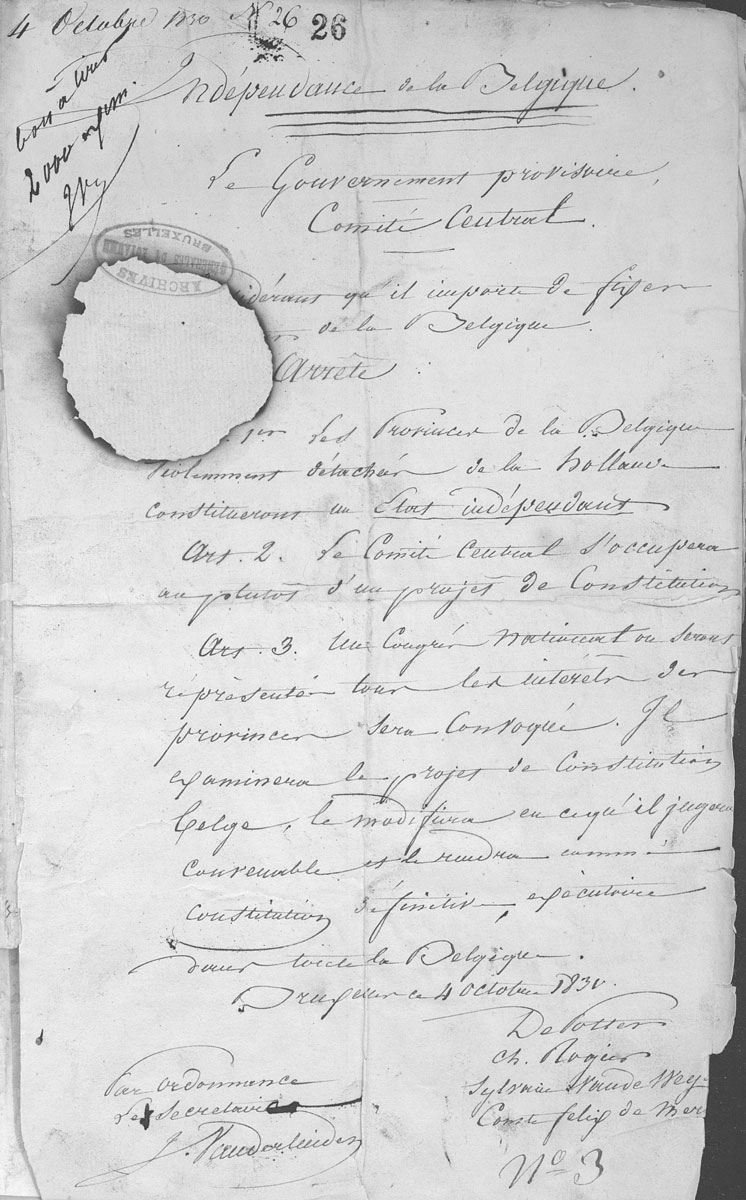 4 Octobre 1830 N 26 26
bon à tirer
2000 exem.
Indépendance de la Belgique.
Le Gouvernement provisoire,
Comité Central.
ARCHIVES
GÉNÉRALES DU ROYAUME
BRUXELLES
idérant qu'il importe de fixer
de la Belgique.
Arrête :
1er Les Provinces de la Belgique
violemment détachées de la hollande
constitueront un Etat indépendant
Art. 2. Le Comité Central s'occupera
au plutôt d'un projet de Constitution
Art. 3. Un Congrès national ou seront
représentés tous les intérêts des
provinces sera convoqué. Il
examinera le projet de Constitution
belge, le modifiera en ce qu'il jugera
convenable et le rendra comme
constitution définitive, exécutoire
dans toute la Belgique.
Bruxelles ce 4 octobre 1830.
De Potter
Ch. Rogier
Sylvain Van de Wey-
Comte felix de Mer
Par ordonnence
Le secretaire
J. Vanderlinden
No 3